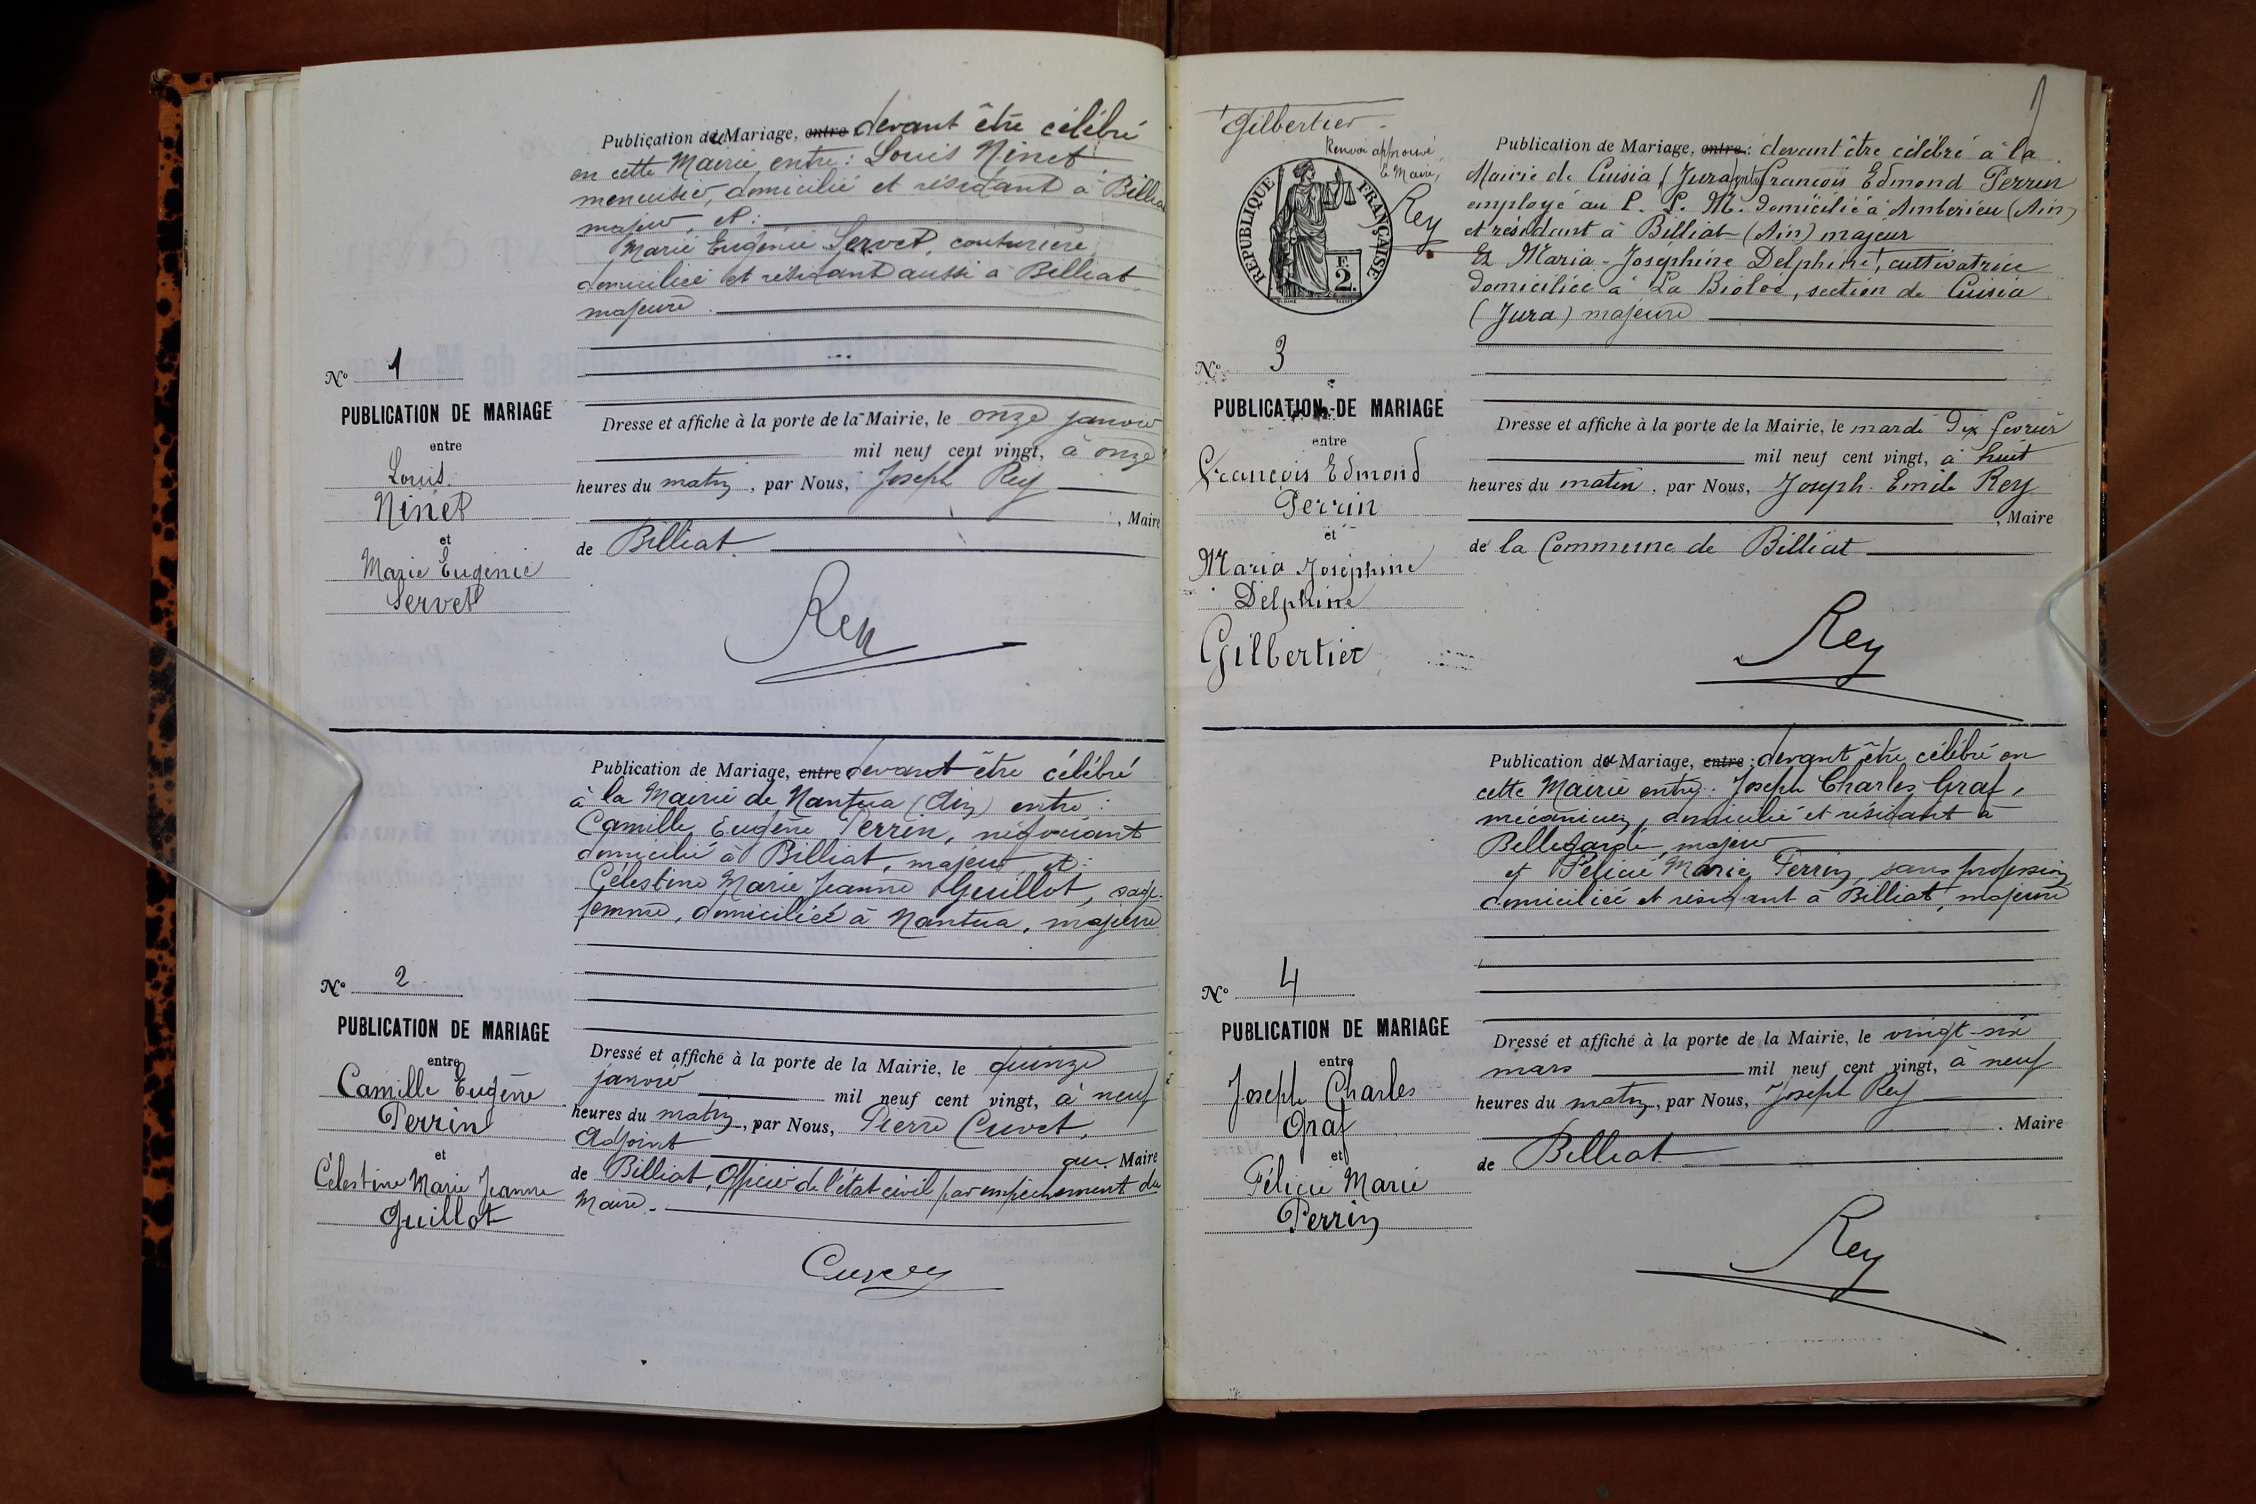 Publication de Mariage, entre devant être célébré
en cette Mairie, entre : Louis Ninet
menuisier, domicilié et résidant à Billiat
majeur, et :
Marie Eugénie Servet, couturière
domiciliée et résidant aussi à Billiat
majeure.
N° 1
PUBLICATION DE MARIAGE
entre
Louis
Ninet
et
Marie Eugénie
Servet
Dresse et affiche à la porte de la Mairie, le onze janvier
mil neuf cent vingt, à onze
heures du matin, par Nous, Joseph Rey
, Maire
de Billiat.
Rey
Publication de Mariage, entre devant être célébré
à la Mairie de Nantua (Ain) entre :
Camille Eugène Perrin, négociant
domicilié à Billiat, majeur et :
Célestine Marie Jeanne Guillot, sage-
femme, domiciliée à Nantua, majeure
N° 2
PUBLICATION DE MARIAGE
entre
Camille Eugène
Perrin
et
Célestine Marie Jeanne
Guillot
Dressé et affiché à la porte de la Mairie, le quinze
janvier mil neuf cent vingt, à neuf
heures du matin, par Nous, Pierre Cuvet,
Adjoint au Maire
de Billiat, Officier de l'état civil par empêchement du
Maire.
Gilbertier
Renvoi approuvé
le Maire,
Rey
RÉPUBLIQUE FRANÇAISE
F.
2.
Publication de Mariage, entre : devant être célébré à la
Mairie de Cuisia (Jura) entre François Edmond Perrin
employé au P. L. M. domicilié à Ambérieu (Ain)
et résidant à Billiat (Ain) majeur
Et Maria-Joséphine Delphine, cultivatrice
domiciliée à La Biolée, section de Cuisia
(Jura) majeure
N° 3
PUBLICATION DE MARIAGE
entre
François Edmond
Perrin
et
Maria Joséphine
Delphine
Gilbertier
Dresse et affiche à la porte de la Mairie, le mardi dix février
mil neuf cent vingt, à huit
heures du matin, par Nous, Joseph Emile Rey
, Maire
de la Commune de Billiat
Rey
Publication de Mariage, entre : devant être célébré en
cette Mairie entre : Joseph Charles Graf,
mécanicien, domicilié et résidant à
Bellegarde, majeur
et Félicie Marie Perrin, sans profession
domiciliée et résidant à Billiat, majeure
N° 4
PUBLICATION DE MARIAGE
entre
Joseph Charles
Graf
et
Félicie Marie
Perrin
Dressé et affiché à la porte de la Mairie, le vingt-six
mars mil neuf cent vingt, à neuf
heures du matin, par Nous, Joseph Rey
. Maire
de Billiat
Rey